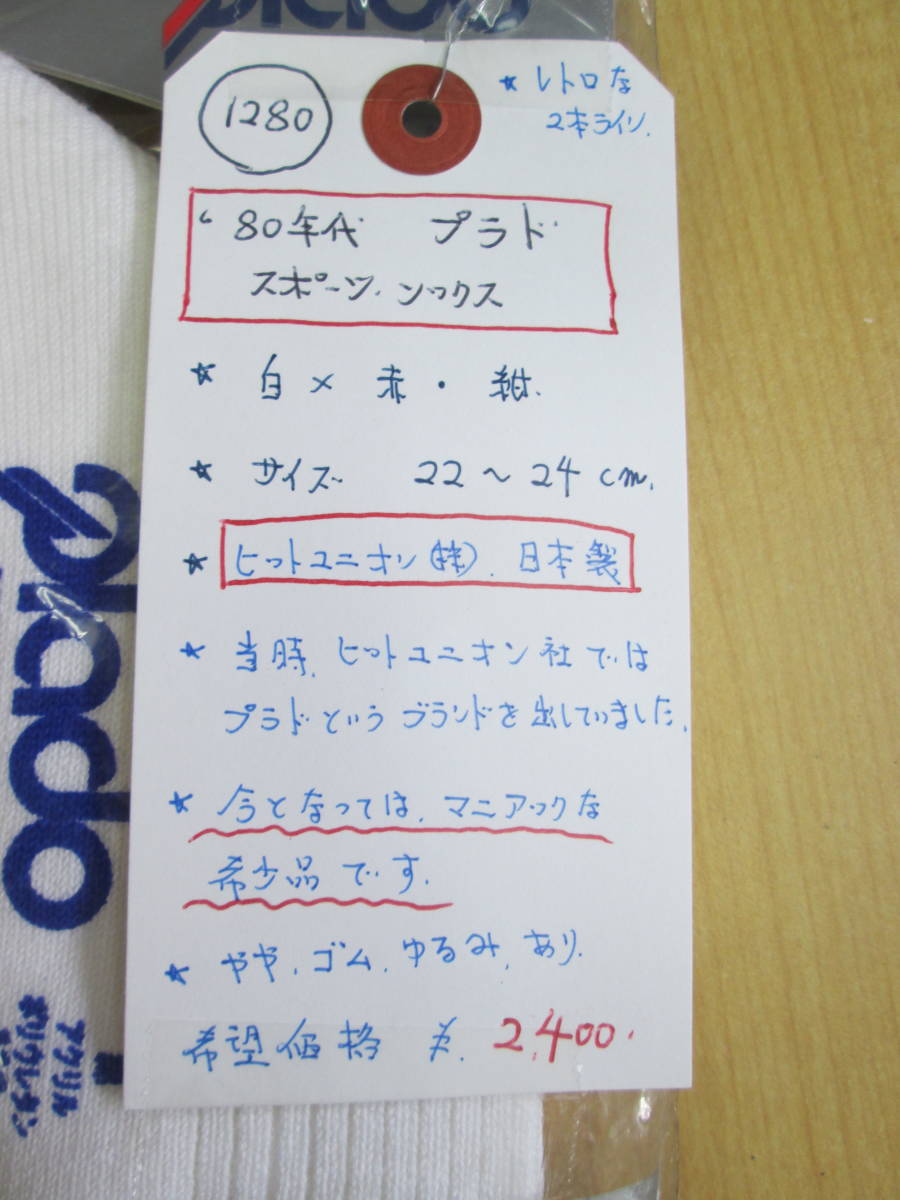 plado
1280
★ レトロな
2本ライン.
'80年代 プラド
スポーツ.ソックス
★ 白 × 赤・紺.
★ サイズ 22〜24cm.
★ ヒットユニオン(株). 日本製
★ 当時.ヒットユニオン社では
プラドというブランドを出していました.
★ 今となっては.マニアックな
希少品です.
★ やや.ゴム.ゆるみ.あり.
希望価格 ¥.2,400.
plado
アクリル
ポリウレタン